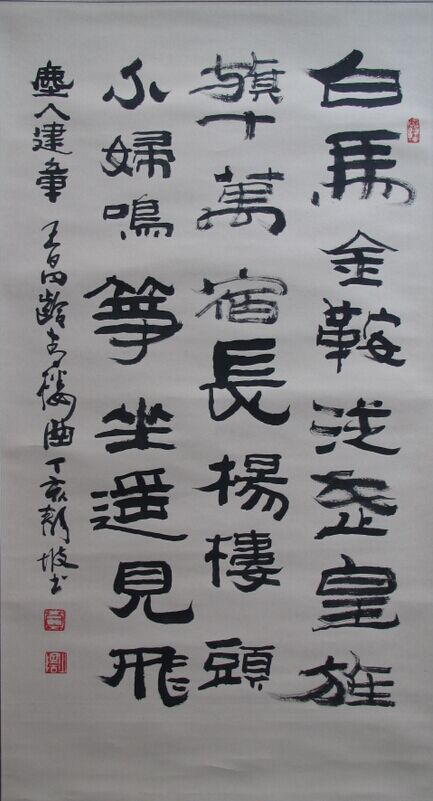 白馬金鞍從武皇旌
旗十萬宿長楊樓頭
小婦鳴箏坐遥見飛
塵入建章 王昌齡青樓曲 丁亥 坡书